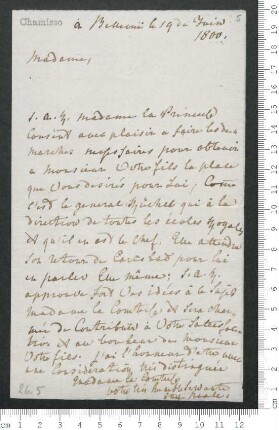 Chamisso
5
à Bellevue le 19 de Juin
1800.
Madame,
S. A. R. madame la Princesse
consent avec plaisir a faire les de
marches nessessaires pour obtenir
a monsieur Votre fils la place
que Vous desirés pour lui, Comme
c'est le general qui à la
direction de toutes les écoles Royales
et qu'il en est le chef. Elle attendra
Son retour de pour lui
en parler Elle même; S. A. R.
approuve fort Vos idées à le Sujet
Madame la Comtesse et Sera char
mée de Contribuer à Votre Satisfac
tion et au bonheur de monsieur
Votre fils. J'ai l'honneur d'être avec
une Consideration très distinguée
Madame la Comtesse
votre très humble servante
26.5